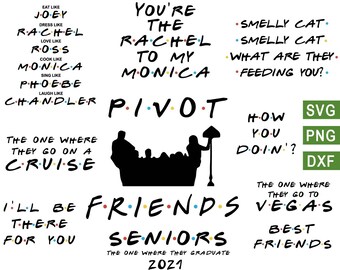 EAT LIKE
JOEY
DRESS LIKE
RACHEL
LOVE LIKE
ROSS
COOK LIKE
MONICA
SING LIKE
PHOEBE
LAUGH LIKE
CHANDLER
YOU'RE
THE
RACHEL
TO MY
MONICA
SMELLY CAT
SMELLY CAT
WHAT ARE THEY
FEEDING YOU?
PIVOT
SVG
PNG
DXF
HOW
YOU
DOIN'?
THE ONE WHERE
THEY GO ON A
CRUISE
I'LL BE
THERE
FOR YOU
FRIENDS
SENIORS
THE ONE WHERE THEY GRADUATE
2021
THE ONE WHERE
THEY GO TO
VEGAS
BEST
FRIENDS